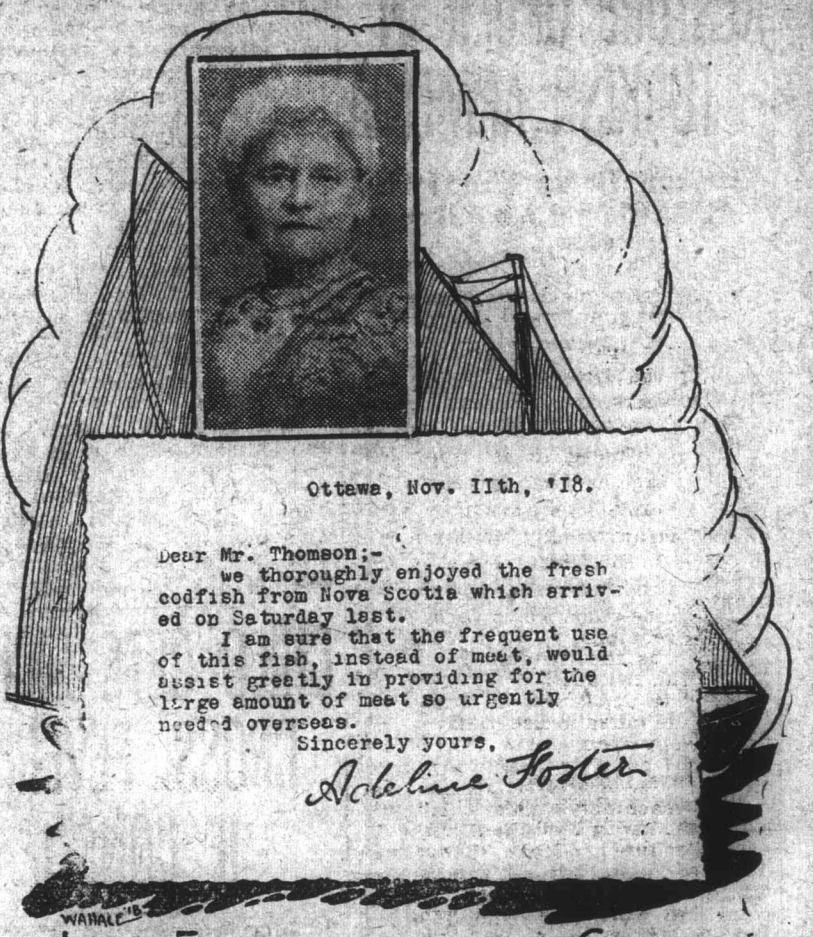 Ottawa, Nov. IIth, '18.
Dear Mr. Thomson;-
we thoroughly enjoyed the fresh
codfish from Nova Scotia which arriv-
ed on Saturday last.
I am sure that the frequent use
of this fish, instead of meat, would
assist greatly in providing for the
large amount of meat so urgently
needed overseas.
Sincerely yours,
Adeline Foster
WAHALE '18